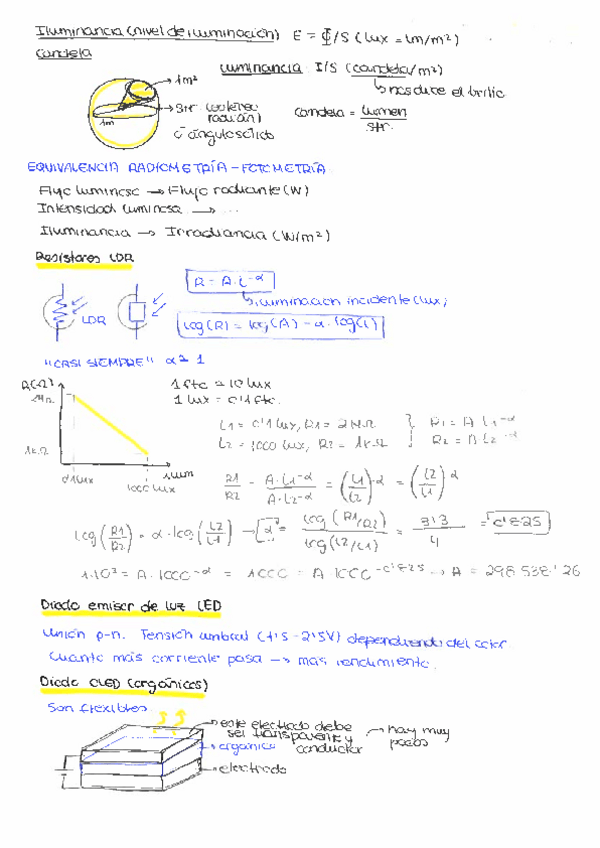 Iluminancia (nivel de iluminación) E = Φ/S (lux = lm/m²)
Candela
Luminancia I/S (candela/m²)
↳ nos dice el brillo
1m²
1m
str (estereo
radián)
ángulo sólido
candela = lumen/str
EQUIVALENCIA RADIOMETRÍA - FOTOMETRÍA
Flujo luminoso → Flujo radiante (W)
Intensidad luminosa → ...
Iluminancia → Irradiancia (W/m²)
Resistores LDR
LDR
R = A·L^-α
↳ iluminación incidente (lux)
log(R) = log(A) - α·log(L)
"CASI SIEMPRE" α ≈ 1
R(Ω)
1kΩ
0'1 lux
1000 lux
1 ftc ≈ 10 lux
1 lux = 0'1 ftc.
L1 = 0'1 lux, R1 = 2MΩ } R1 = A L1^-α
L2 = 1000 lux, R2 = 1kΩ } R2 = A·L2^-α
R1/R2 = A·L1^-α/A·L2^-α = (L1/L2)^-α = (L2/L1)^α
log(R1/R2) = α·log(L2/L1) → α = log(R1/R2)/log(L2/L1) = 3'3/4 = 0'825
1·10³ = A·1000^-α = 1000 = A·1000^-0'825 → A = 298538'26
Diodo emisor de luz LED
Unión p-n. Tensión umbral (1'5 - 2'5V) dependiendo del color
Cuanto más corriente pasa → más rendimiento.
Diodo OLED (orgánicos)
Son flexibles
este electrodo debe
ser transparente y
conductor
→ hay muy
pocos
→ orgánico
→ electrodo